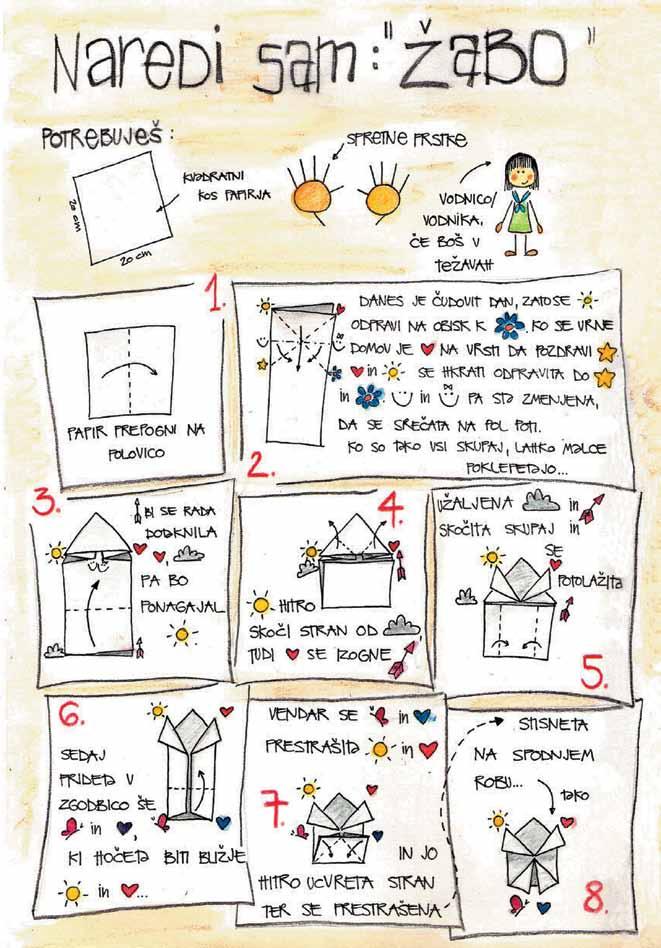 Naredi sam: "žabo"
POTREBUJEŠ:
20 cm
20 cm
KVADRATNI
KOS PAPIRJA
SPRETNE PRSTKE
VODNICO/
VODNIKA,
ČE BOŠ V
TEŽAVAH
1.
PAPIR PREPOGNI NA
POLOVICO
2.
DANES JE ČUDOVIT DAN, ZATO SE
ODPRAVI NA OBISK K KO SE VRNE
DOMOV JE NA VRSTI DA POZDRAVI
in SE HKRATI ODPRAVITA DO
in . in PA STA ZMENJENA,
DA SE SREČATA NA POL POTI.
KO SO TAKO VSI SKUPAJ, LAHKO MALCE
POKLEPETAJO...
3.
BI SE RADA
DOTAKNILA
,
PA BO
PONAGAJAL
4.
HITRO
SKOČI STRAN OD ,
TUDI SE IZOGNE
UŽALJENA in
SKOČITA SKUPAJ in
SE
POTOLAŽITA
5.
6.
SEDAJ
PRIDETA V
ZGODBICO ŠE
in ,
KI HOČETA BITI BLIŽJE
in ...
VENDAR SE in
PRESTRAŠITA in
7.
IN JO
HITRO UCVRETA STRAN
TER SE PRESTRAŠENA
STISNETA
NA SPODNJEM
ROBU...
TAKO
8.